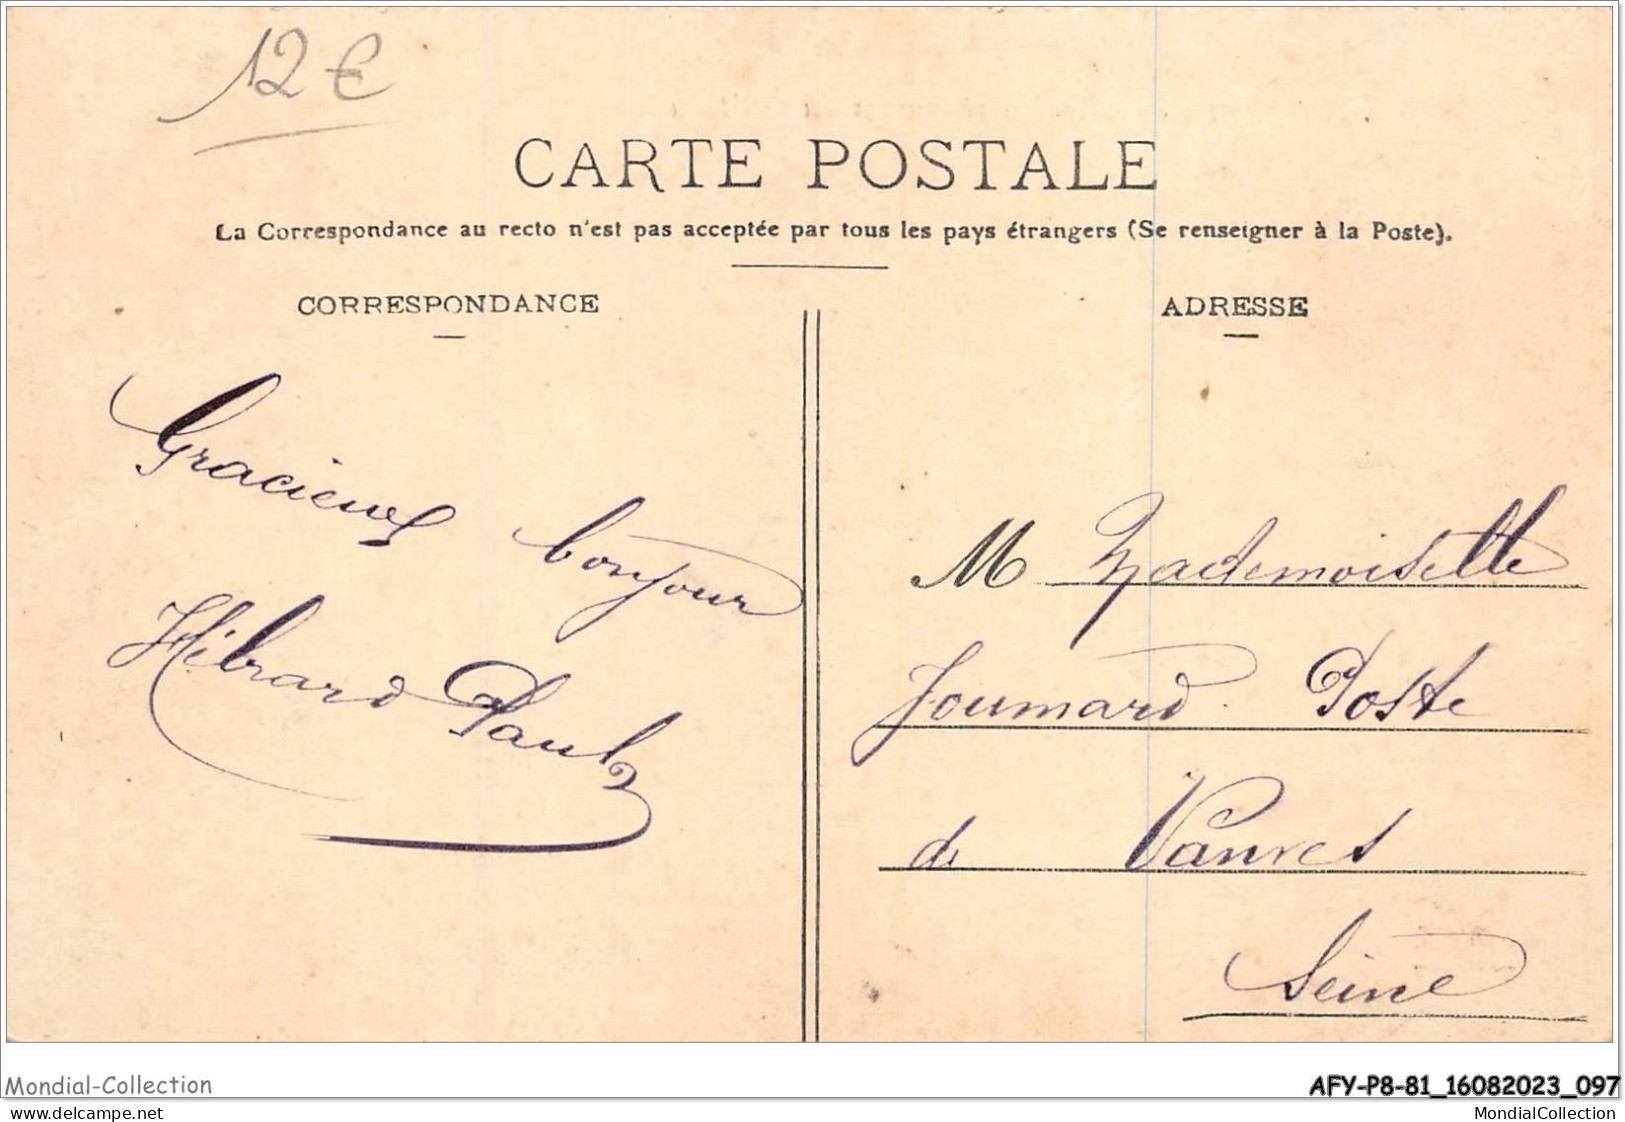 12€
CARTE POSTALE
La Correspondance au recto n'est pas acceptée par tous les pays étrangers (Se renseigner à la Poste).
CORRESPONDANCE
ADRESSE
Gracieux bonjour
Hébrard Paul
M Mademoiselle
Joumard Poste
de Vanves
Seine
Mondial-Collection
AFY-P8-81_16082023_097
www.delcampe.net
MondialCollection